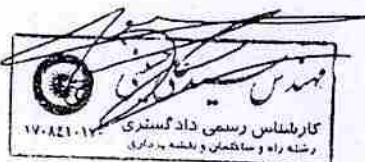 مهندس
کارشناس رسمی دادگستری
۱۷۰۸٤۱۰۱۷۰
رشته راه و ساختمان و نقشه برداری